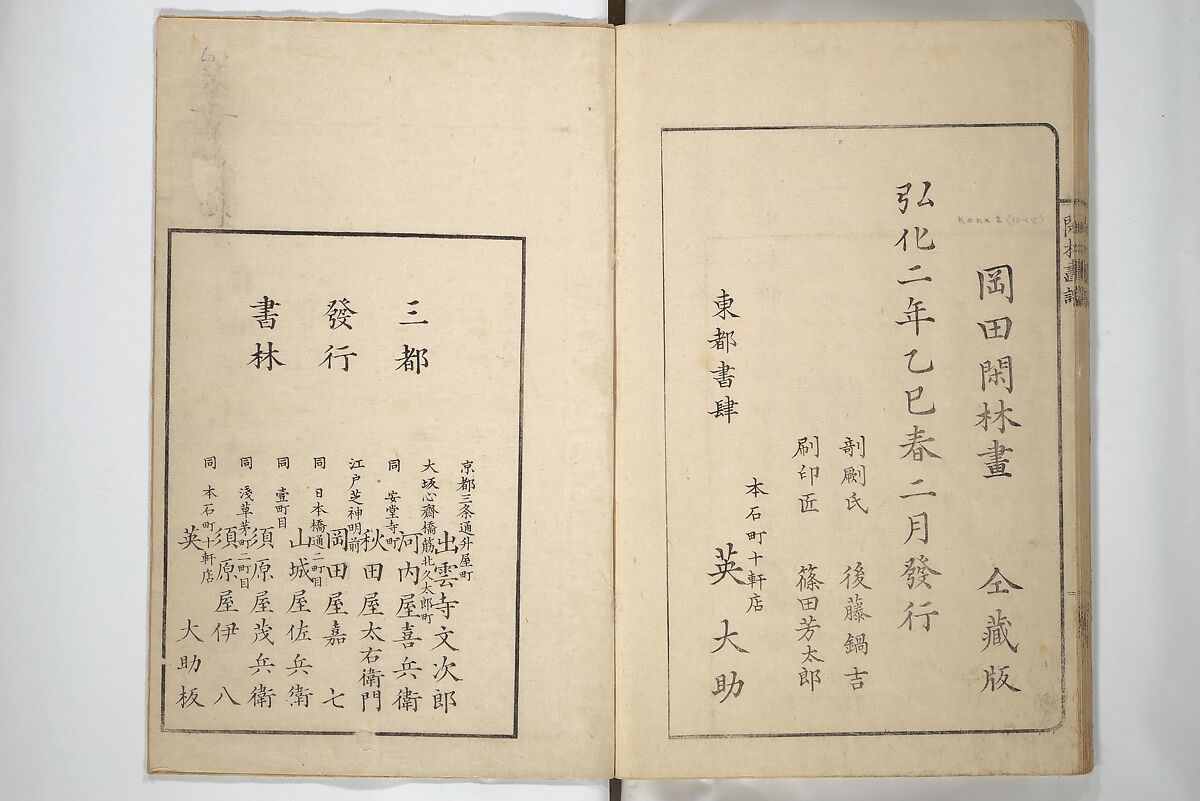 岡田閑林畫 仝藏版
Koka 2 (1845)
弘化二年乙巳春二月發行
剞劂氏 後藤鍋吉
刷印匠 篠田芳太郎
東都書肆
本石町十軒店
英大助
三都
發行
書林
京都三条通升屋町
出雲寺文次郎
大坂心齋橋筋北久太郎町
河内屋喜兵衛
同 安堂寺町
秋田屋太右衛門
江戸芝神明前
岡田屋嘉七
同 日本橋通二町目
山城屋佐兵衛
同 壹町目
須原屋茂兵衛
同 淺草茅町二町目
須原屋伊八
同 本石町十軒店
英大助板